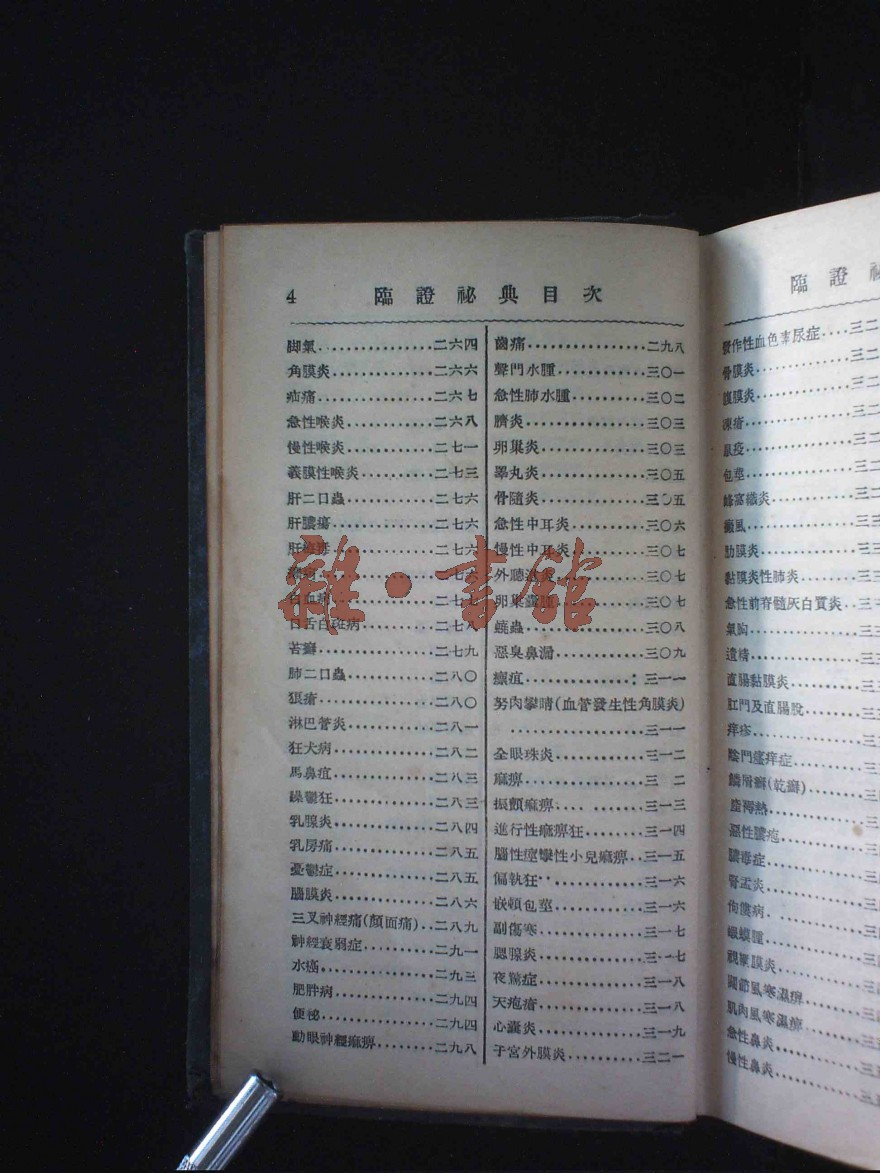 4 臨證祕典目次
脚氣................二六四
角膜炎..............二六六
疝痛................二六七
急性喉炎............二六八
慢性喉炎............二七一
義膜性喉炎..........二七三
肝二口蟲............二七六
肝膿瘍..............二七六
二七六
二七六
白血病..............二七七
口舌白斑病..........二七八
苔癬................二七九
肺二口蟲............二八〇
猩瘡................二八〇
淋巴管炎............二八一
狂犬病..............二八二
馬鼻疽..............二八三
躁鬱狂..............二八三
乳腺炎..............二八四
乳房痛..............二八五
憂鬱症..............二八五
腦膜炎..............二八六
三叉神經痛(顏面痛)..二八九
神經衰弱症..........二九一
水癌................二九三
肥胖病..............二九四
便祕................二九四
動眼神經麻痹........二九八
齒痛................二九八
聲門水腫............三〇一
急性肺水腫..........三〇二
臍炎................三〇三
卵巢炎..............三〇三
睪丸炎..............三〇五
骨髓炎..............三〇五
急性中耳炎..........三〇六
慢性中耳炎..........三〇七
外聽道炎............三〇七
卵巢囊腫............三〇七
蟯蟲................三〇八
惡臭鼻漏............三〇九
瘰疽................三一一
努肉攀睛(血管發生性角膜炎)
................三一一
全眼珠炎............三一二
麻痹................三 二
振顫麻痹............三一三
進行性麻痹狂........三一四
腦性痙攣性小兒麻痹..三一五
偏執狂..............三一六
嵌頓包莖............三一六
副傷寒..............三一七
腮腺炎..............三一七
夜驚症..............三一八
天疱瘡..............三一八
心囊炎..............三一九
子宮外膜炎..........三二一
臨證祕
發作性血色素尿症....三二
骨膜炎..............三二
腹膜炎..............三二
凍瘡................三二
鼠疫................三二
包莖................三
蜂窩織炎............三
癜風................三三
肋膜炎..............三三
黏膜炎性肺炎........三
急性前脊髓灰白質炎..三
氣胸................三
遺精................三
直腸黏膜炎..........三
肛門及直腸脫........三
痒疹................三
陰門瘙痒症..........三
鱗屑癬(乾癬)........三
產褥熱..............三
惡性膿疱............三
膿毒症..............三
腎盂炎..............三
佝僂病..............三
蝦蟆腫..............三
視網膜炎............三
關節風寒濕痹........三
肌肉風寒濕痹........三
急性鼻炎............三
慢性鼻炎............三
雜·書館